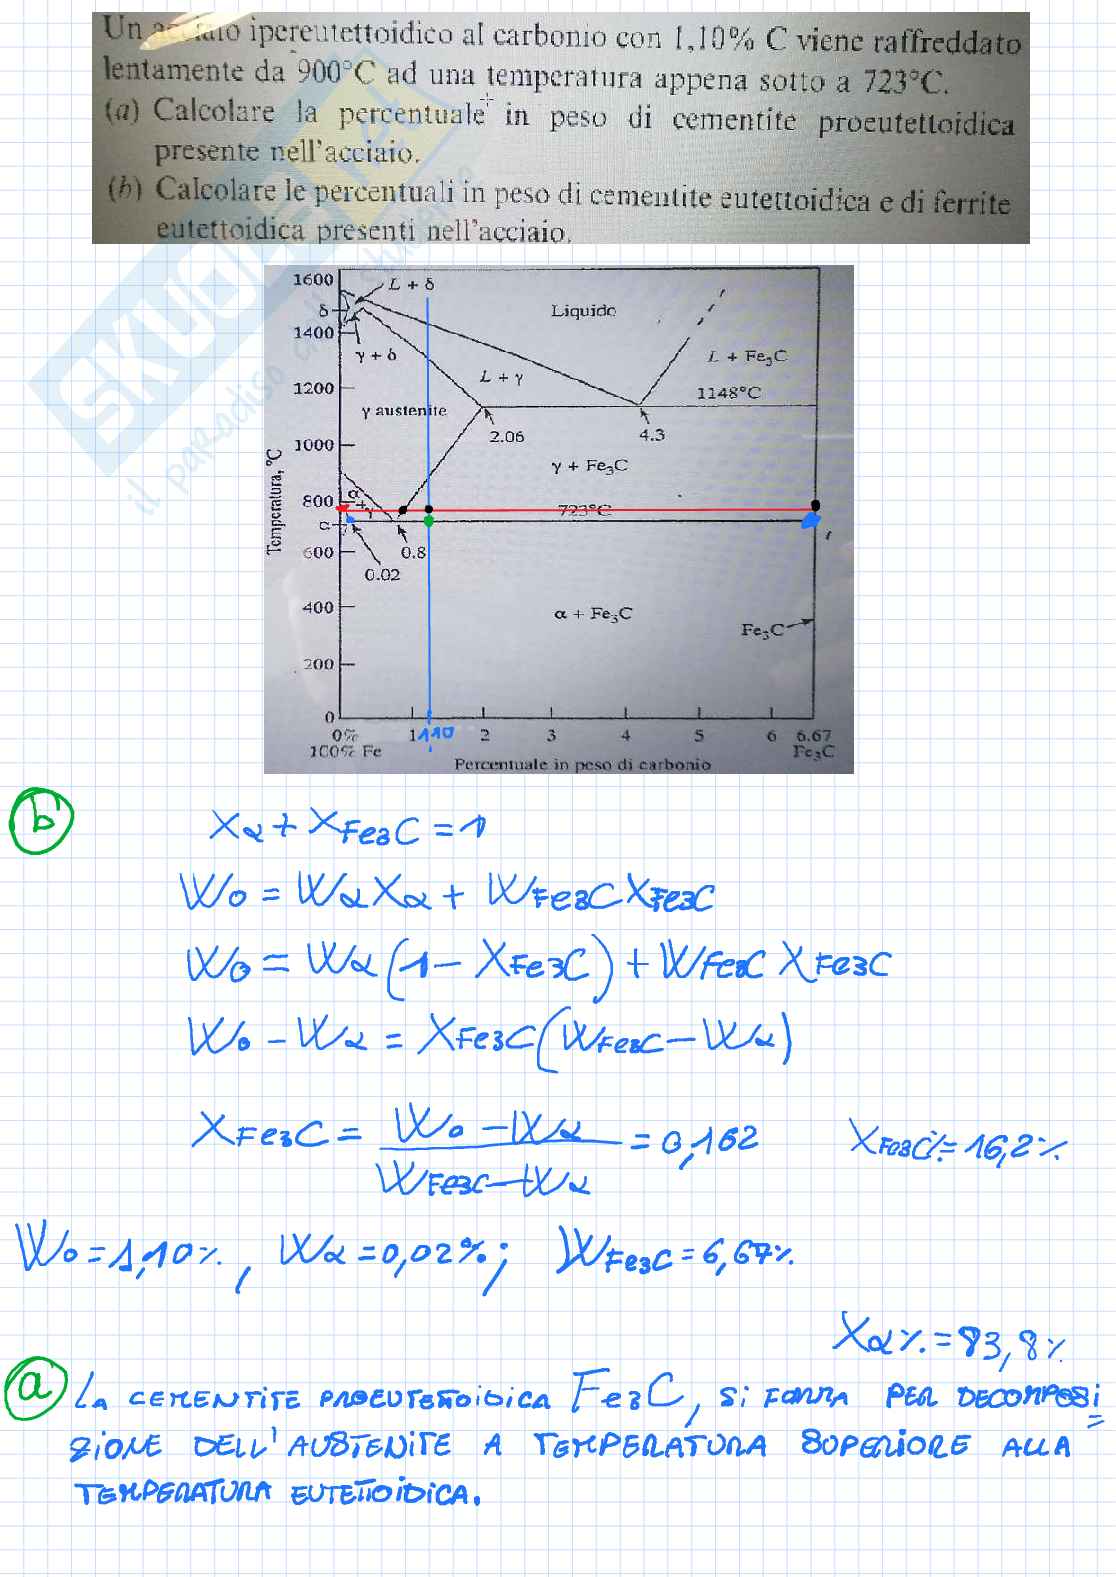 Un acciaio ipereutettoidico al carbonio con 1,10% C viene raffreddato
lentamente da 900°C ad una temperatura appena sotto a 723°C.
(a) Calcolare la percentuale in peso di cementite proeutettoidica
presente nell'acciaio.
(b) Calcolare le percentuali in peso di cementite eutettoidica e di ferrite
eutettoidica presenti nell'acciaio.
SKUOLA.net
il paradiso dello studente
1600
L + δ
δ
Liquido
1400
γ + δ
L + Fe₃C
L + γ
1200
1148°C
γ austenite
2.06
4.3
1000
γ + Fe₃C
Temperatura, °C
α
+
γ
800
723°C
α
600
0.8
0.02
400
α + Fe₃C
Fe₃C
200
0
0%
1
110
2
3
4
5
6
6.67
100% Fe
Fe₃C
Percentuale in peso di carbonio
b
Xα + XFe3C = 1
W0 = WαXα + WFe3C XFe3C
W0 = Wα(1 - XFe3C) + WFe3C XFe3C
W0 - Wα = XFe3C(WFe3C - Wα)
XFe3C = W0 - Wα / WFe3C - Wα = 0,162
XFe3C% = 16,2%
W0 = 1,10%, Wα = 0,02%; WFe3C = 6,67%
Xα% = 83,8%
a
LA CEMENTITE PROEUTETTOIDICA Fe3C, SI FORMA PER DECOMPOSI
ZIONE DELL'AUSTENITE A TEMPERATURA SUPERIORE ALLA
TEMPERATURA EUTETTOIDICA.